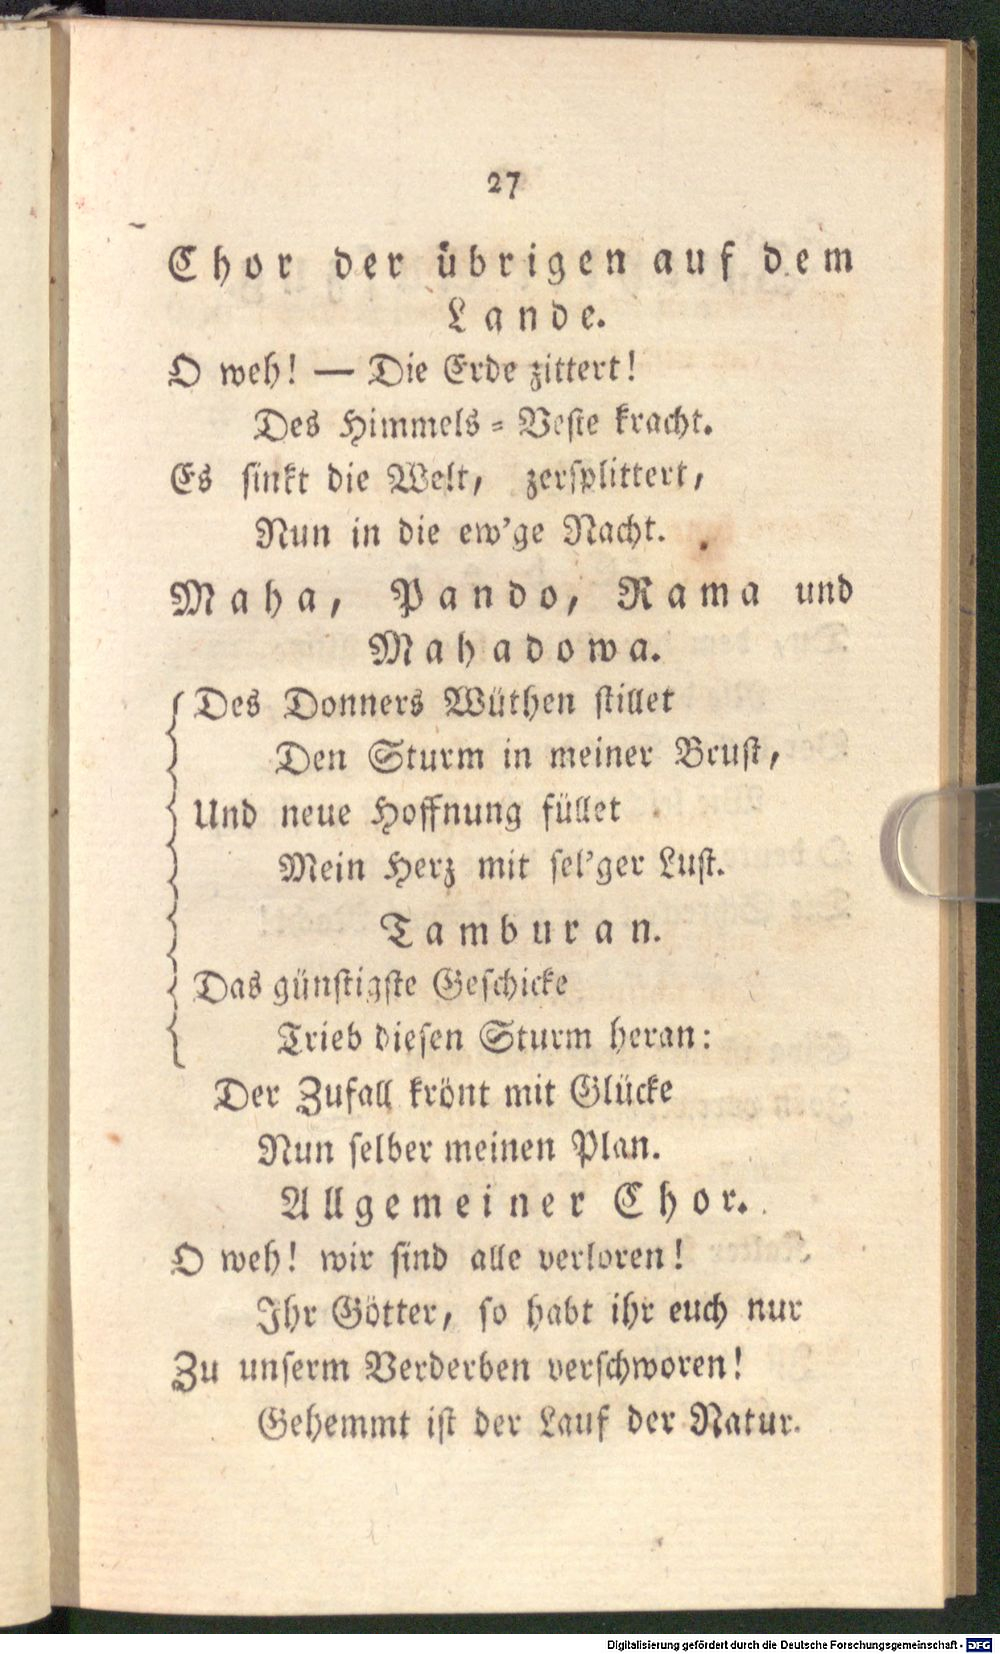 27
Chor der übrigen auf dem
Lande.
O weh! — Die Erde zittert!
Des Himmels = Veste kracht.
Es sinkt die Welt, zersplittert,
Nun in die ew'ge Nacht.
Maha, Pando, Rama und
Mahadowa.
Des Donners Wüthen stillet
Den Sturm in meiner Brust,
Und neue Hoffnung füllet
Mein Herz mit sel'ger Lust.
Tamburan.
Das günstigste Geschicke
Trieb diesen Sturm heran:
Der Zufall krönt mit Glücke
Nun selber meinen Plan.
Allgemeiner Chor.
O weh! wir sind alle verloren!
Ihr Götter, so habt ihr euch nur
Zu unserm Verderben verschworen!
Gehemmt ist der Lauf der Natur.
Digitalisierung gefördert durch die Deutsche Forschungsgemeinschaft - DFG